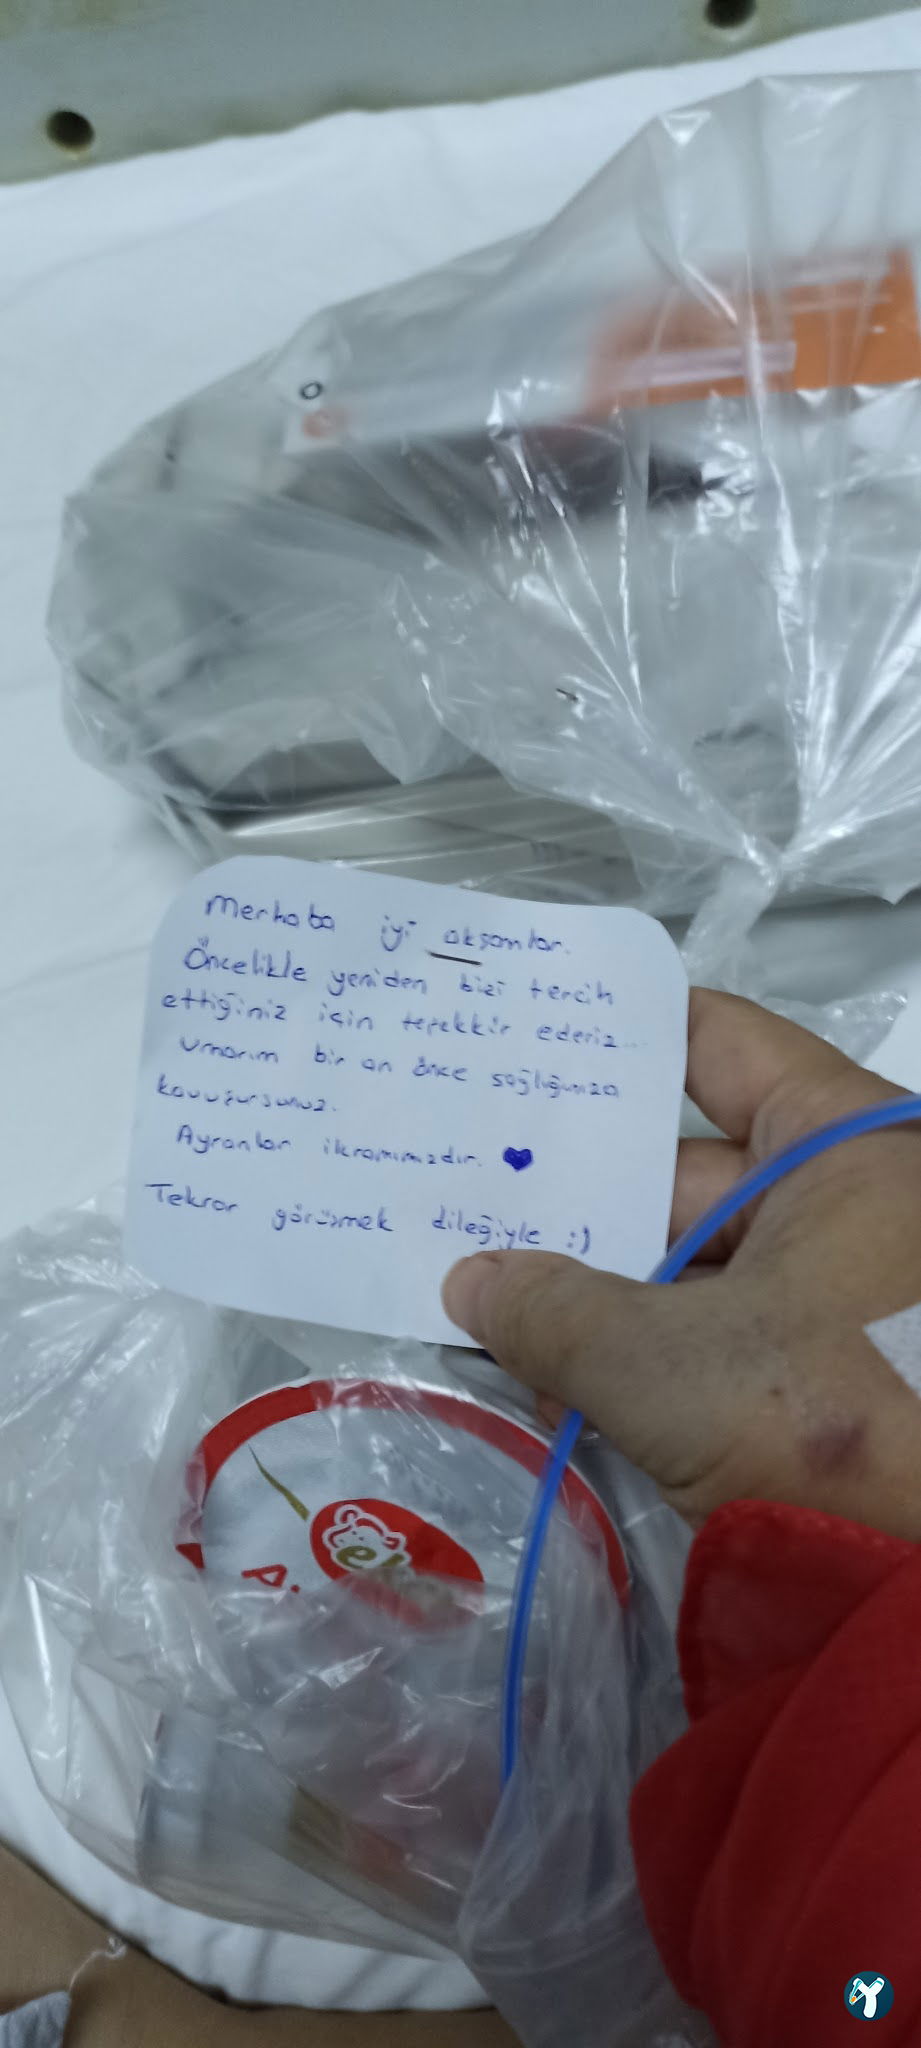 Merhaba iyi akşamlar.
Öncelikle yeniden bizi tercih
ettiğiniz için teşekkir ederiz...
umarım bir an önce sağlığınıza
kavuşursunuz.
Ayranlar ikramımızdır. ♥
Tekrar görüşmek dileğiyle :)